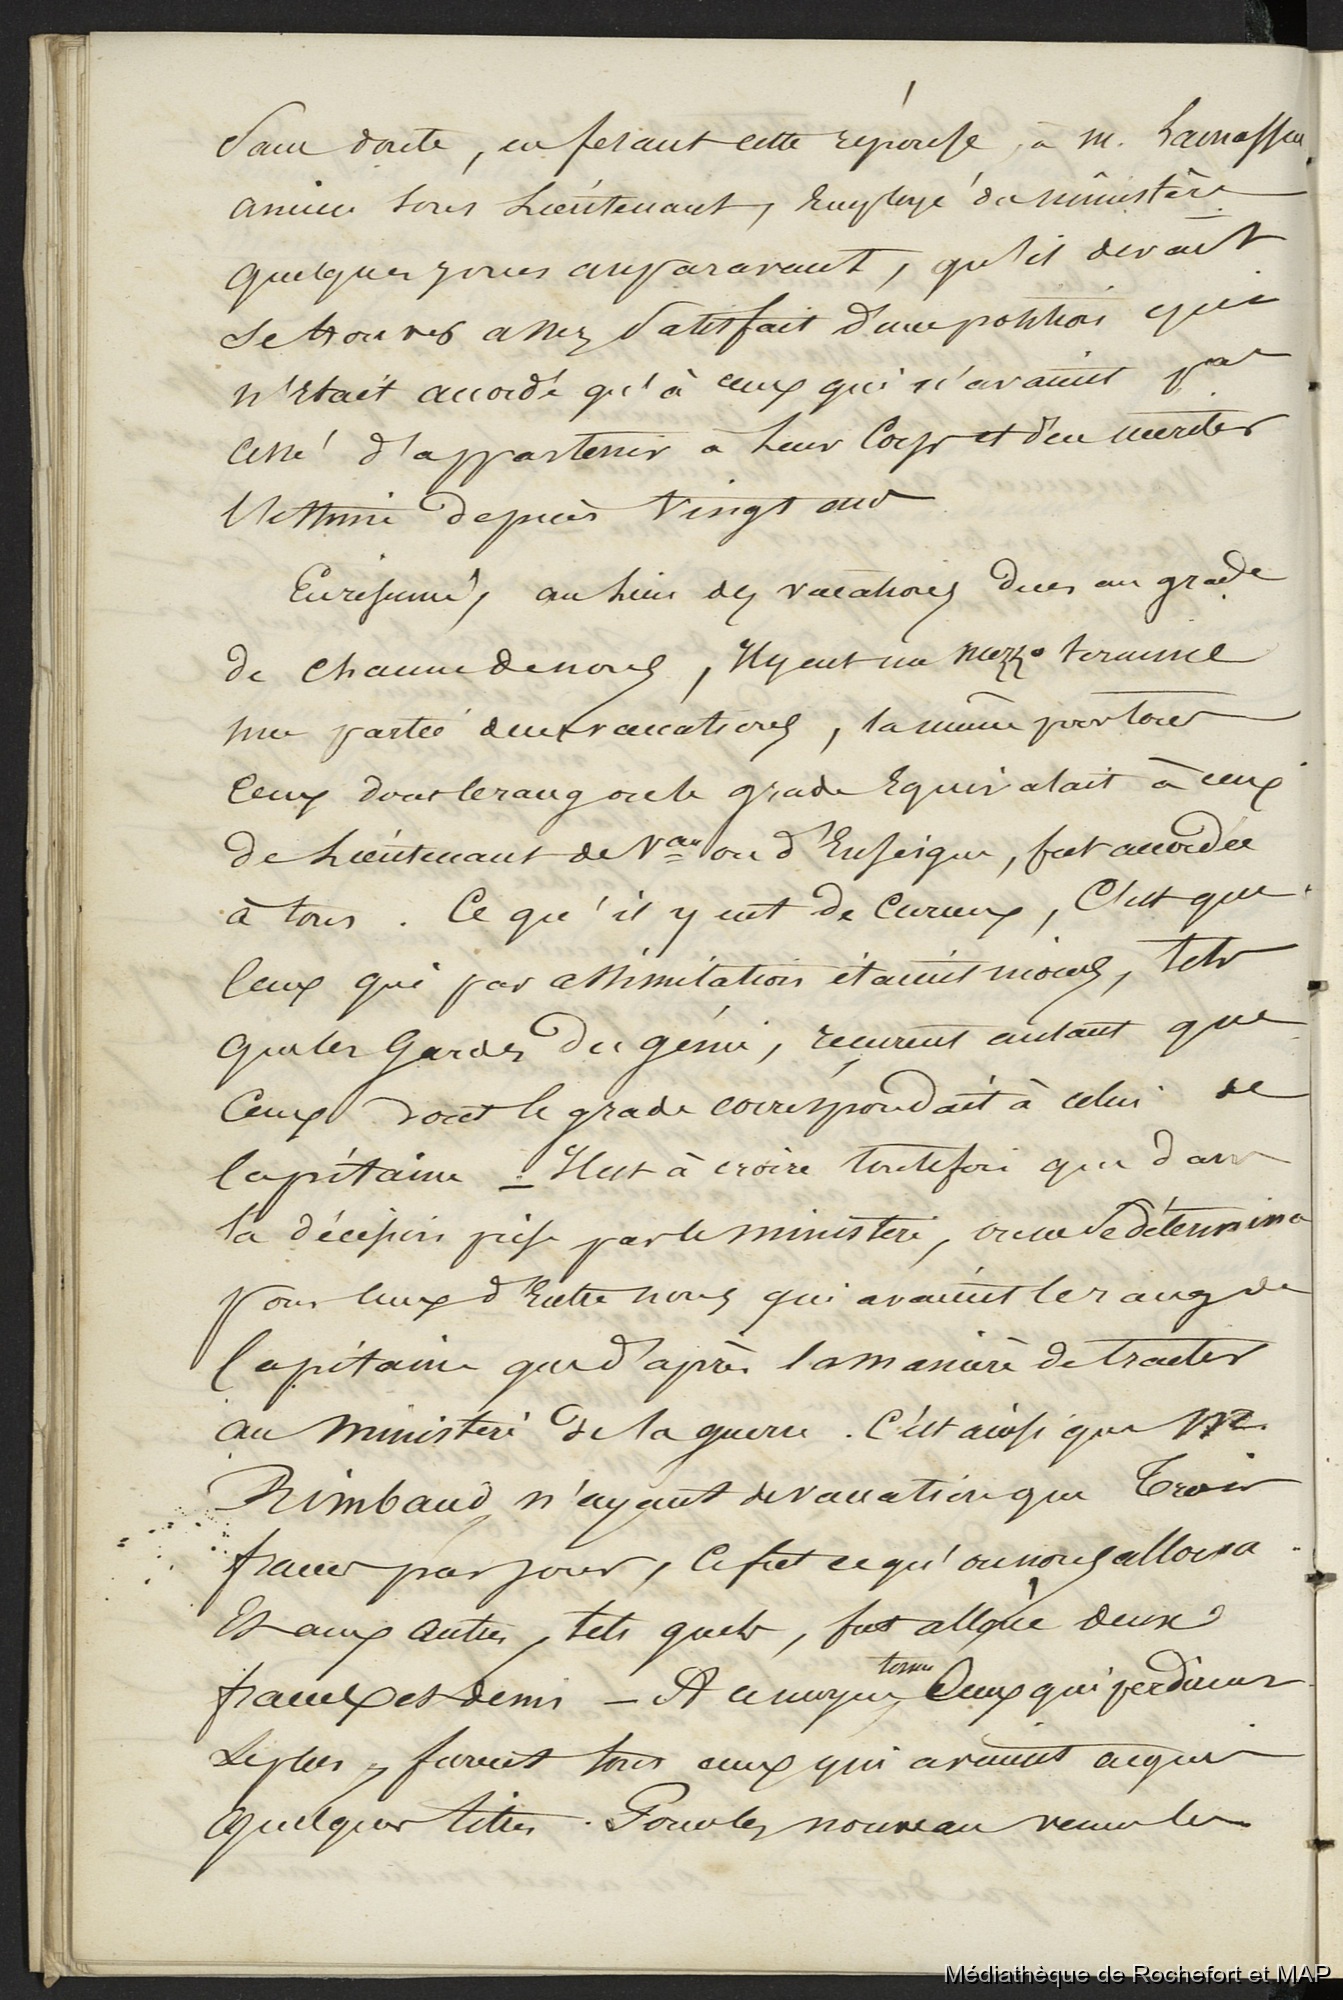 Sans doute, en fesant cette réponse, à M. Lamassu
ancien sous Lieutenant, Employé du ministère
quelques jours auparavant, qu'il devait
se trouver assez Satisfait d'une position qui
n'était accordé qu'à ceux qui n'avaient pas
cessé d'appartenir à leur Corps et d'en meriter
l'estime depuis vingt ans
En résumé, au lieu des vacations dues au grade
de chacun de nous, Il y eut un mezzo termine
une partie des vacations, la même pour tous
Ceux dont le rang ou le grade Equivalait à ceux
de Lieutenant de Vau ou d'Enseigne, fut accordée
à tous. Ce qu'il y eut de Curieux, C'est que
Ceux qui par assimilation étaient moins, tels
que les Gardes du génie, reçurent autant que
Ceux dont le grade correspondait à celui de
Capitaine – Il est à croire toutefois que dans
la décision prise par le ministère, on ne se détermina
pour ceux d'Entre nous qui avaient le rang de
Capitaine que d'après la manière de traiter
au Ministère de la guerre. C'est ainsi que M.
Rimbaud n'ayant de vacation que Trois
francs par jour, Ce fut ce qu'on nous alloua
Et aux autres, tels quels, fut allouée deux
francs et demi – A ce moyen terme Ceux qui perdirent
le plus, furent tous ceux qui avaient acquis
quelques titres. Pour les nouveau venu les